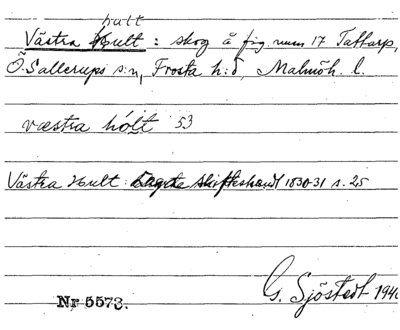 hult
Västra Hult : skog å fig. num 17 Tattarp,
Ö Sallerups s:n, Frosta h:d, Malmöh. l.
væstra hólt 53
Västra Hult: Lagete skifteshandl 1830-31 s. 25
G. Sjöstedt 1940
Nr 5573.